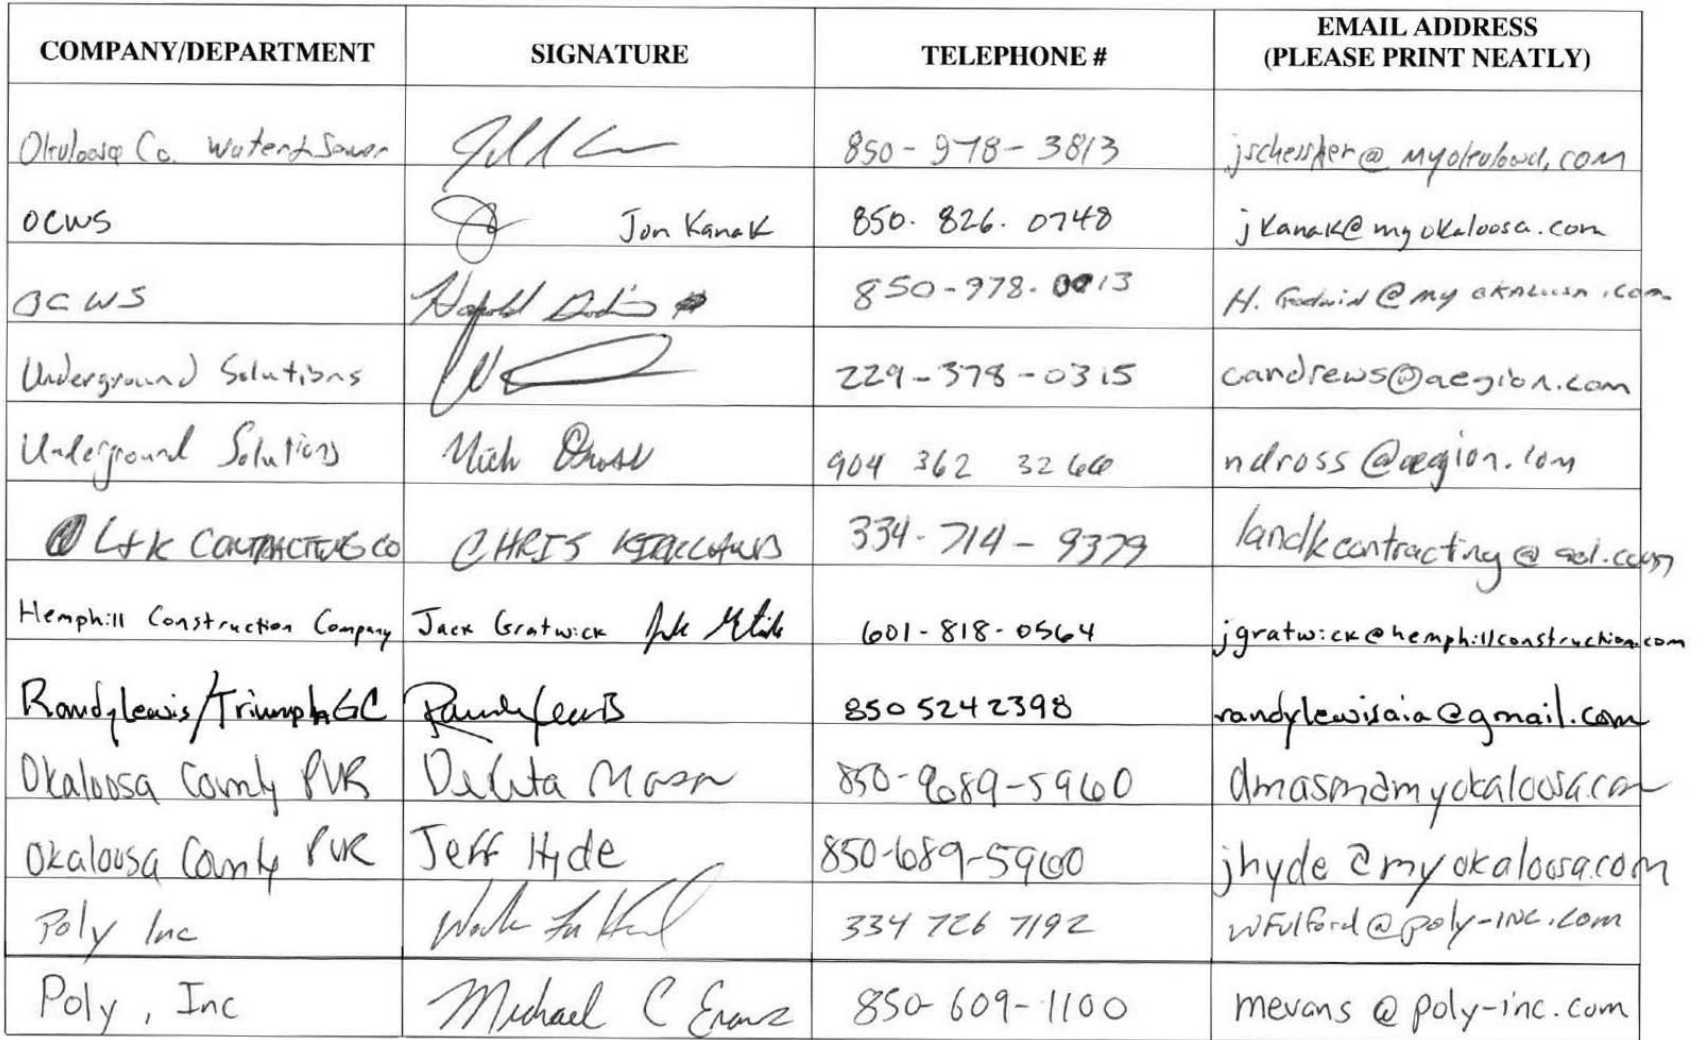 COMPANY/DEPARTMENT SIGNATURE TELEPHONE # EMAIL ADDRESS
(PLEASE PRINT NEATLY)
Okaloosa Co. Water & Sewer 850-978-3813
OCWS Jon Kanak 850.826.0748 jkanak@myokaloosa.com
OCWS Harold 850-978. H.Godwin@myokaloosa.com
Underground Solutions 229-378-0315 candrews@aegion.com
Underground Solutions Nick Dross 904 362 3266 ndross@aegion.com
L+K CONTRACTING CO CHRIS KIRKLAND 334-714-9379 landkcontracting@aol.com
Hemphill Construction Company Jack Gratwick 601-818-0564 jgratwick@hemphillconstruction.com
Randy Lewis/Triumph GC Randy Lewis 850 524 2398 randylewisaia@gmail.com
Okaloosa County PUR DeRita Mason 850-689-5960 dmason@myokaloosa.com
Okaloosa County PUR Jeff Hyde 850-689-5960 jhyde@myokaloosa.com
Poly Inc 334 726 7192 wfulford@poly-inc.com
Poly, Inc Michael C Evans 850-609-1100 mevans@poly-inc.com